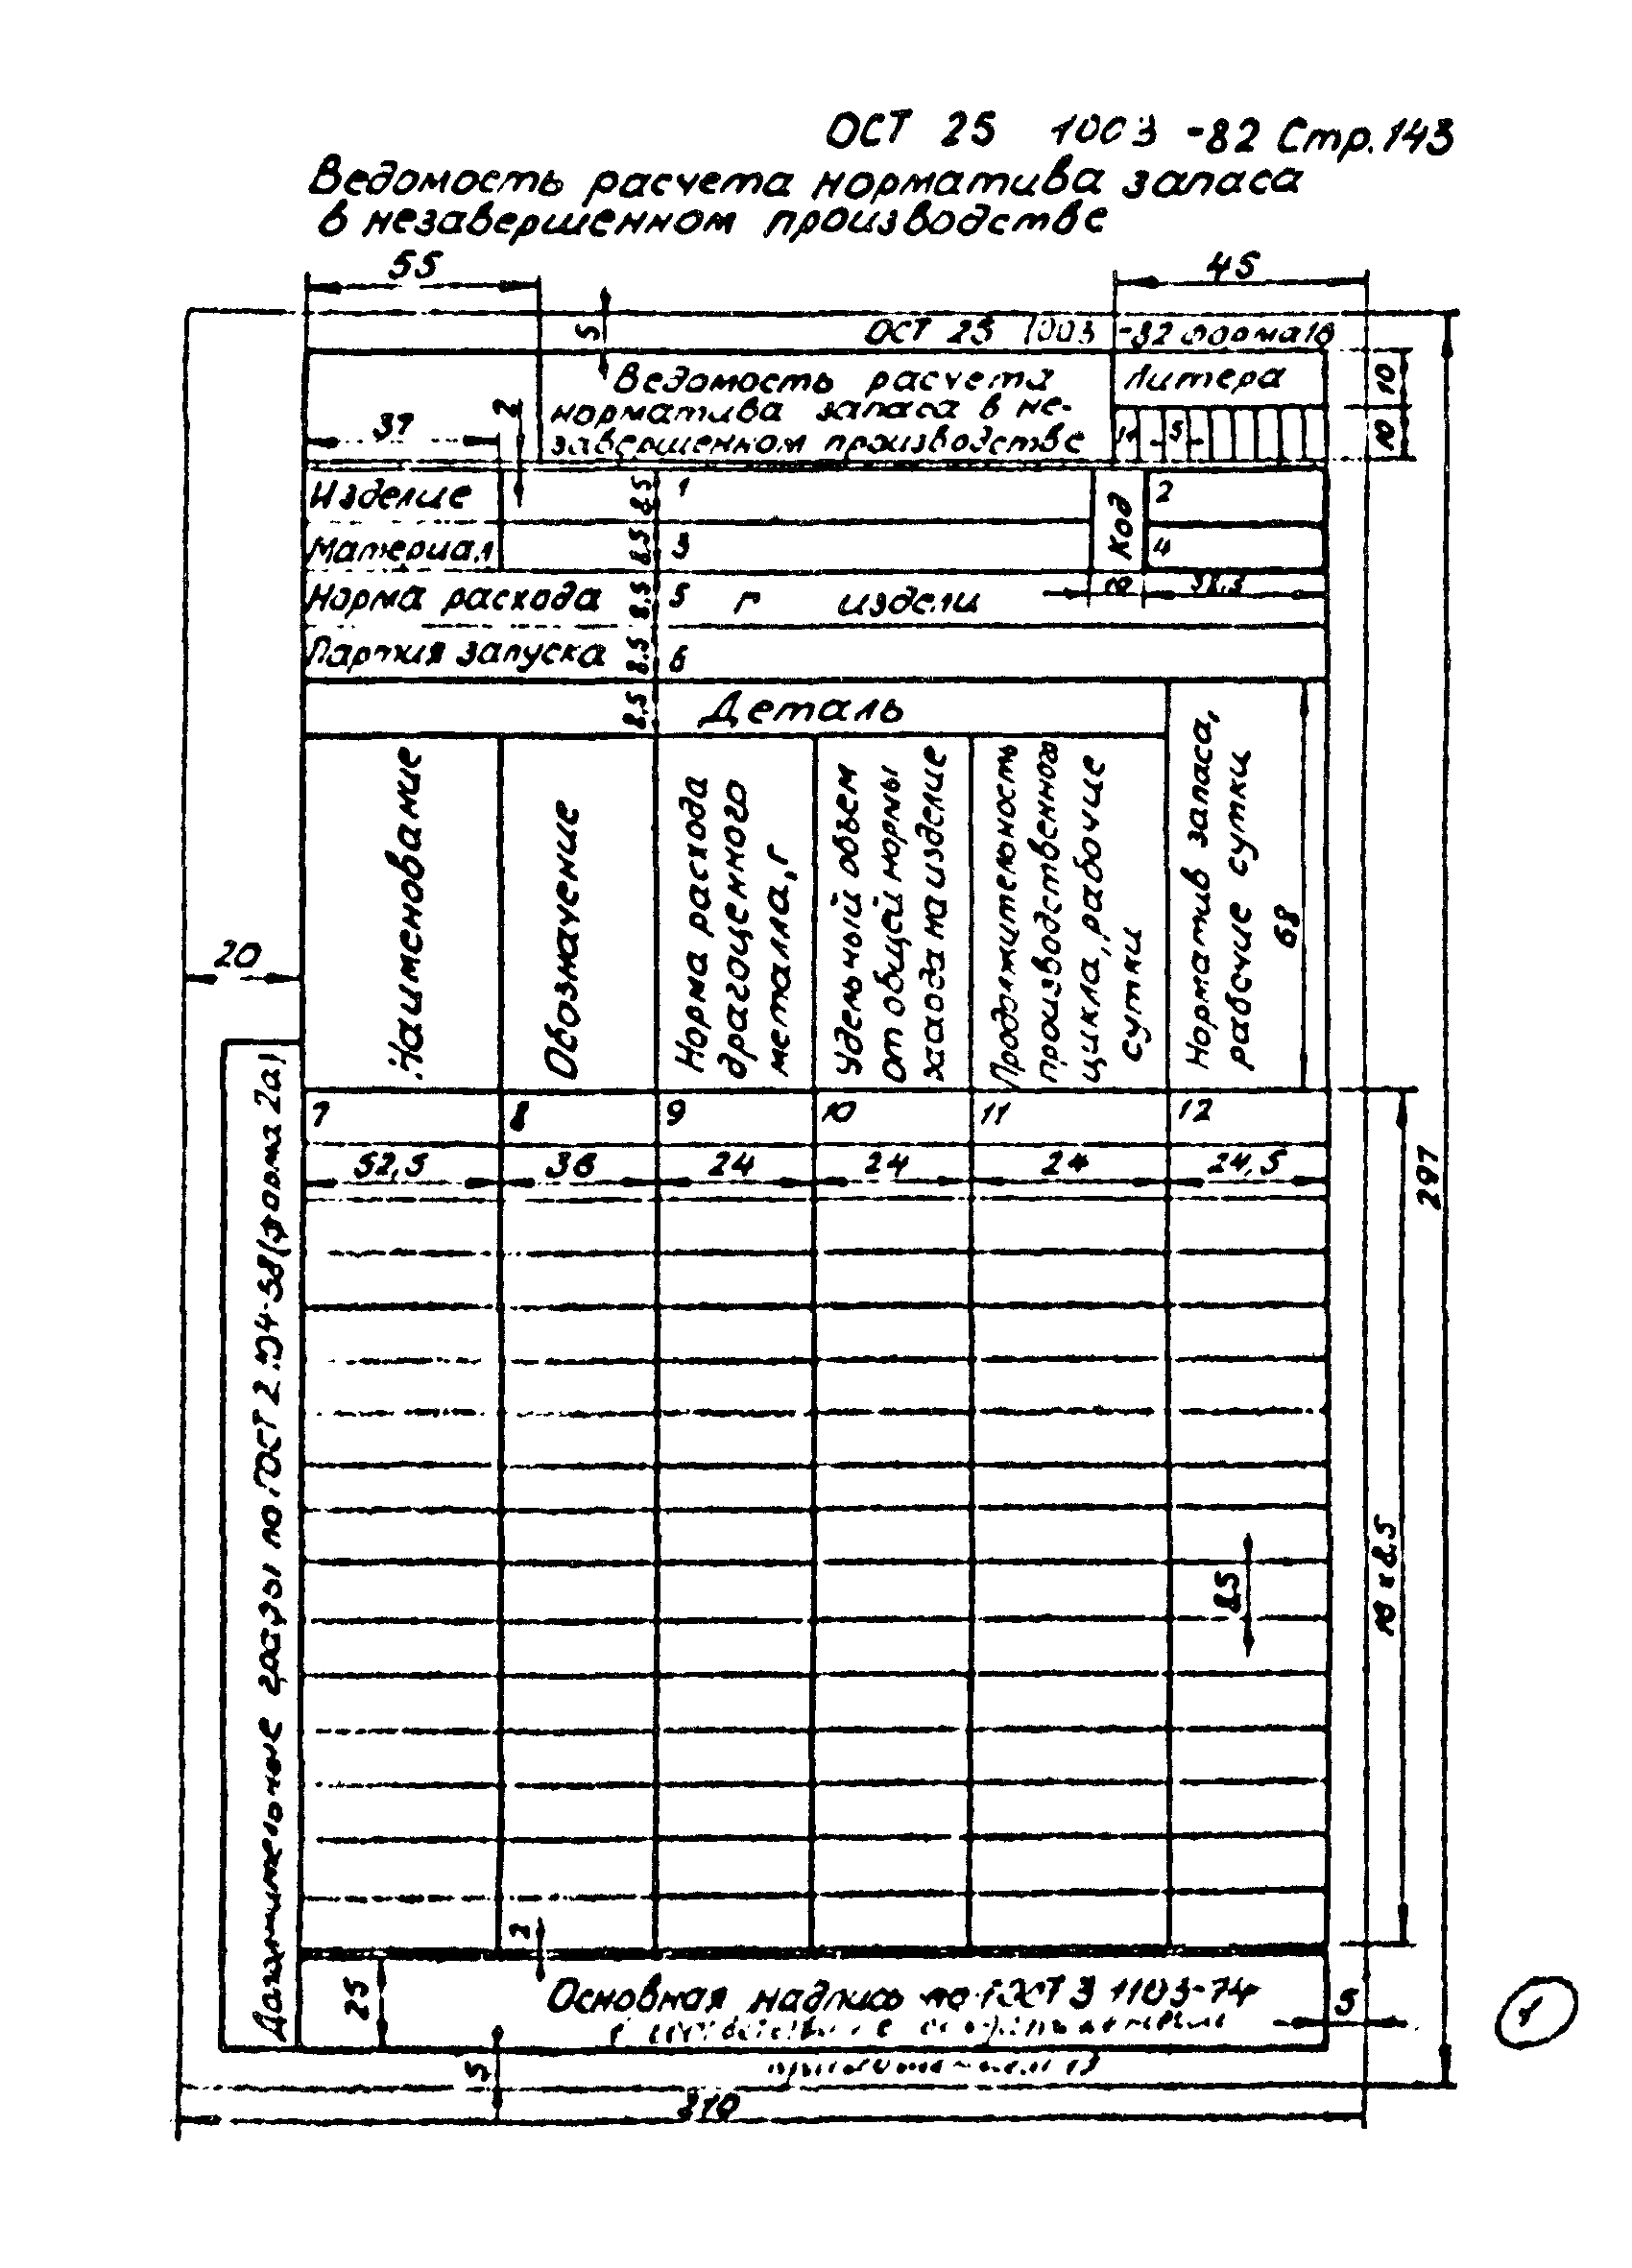 ОСТ 25 1003 -82 Стр. 143
Ведомость расчета норматива запаса
в незавершенном производстве
55
45
5
ОСТ 25 1003 -82 форма 18
Ведомость расчета
норматива запаса в не-
завершенном производстве
Литера
10
10
37
2
5
Изделие
8,5
1
Код
2
Материал
8,5
3
4
8
Норма расхода
8,5
5 г издели
Партия запуска
8,5
6
8,5
Деталь
Наименование
Обозначение
Норма расхода
драгоценного
металла, г
Удельный объем
от общей нормы
расхода на изделие
Продолжительность
производственного
цикла, рабочие
сутки
Норматив запаса,
рабочие сутки
68
20
7
8
9
10
11
12
52,5
36
24
24
24
24,5
297
8,5
8,5
Дополнительные графы по ГОСТ 2.104-68 (форма 2а)
2
25
Основная надпись по ГОСТ 3 1103-74
5
5
210
1